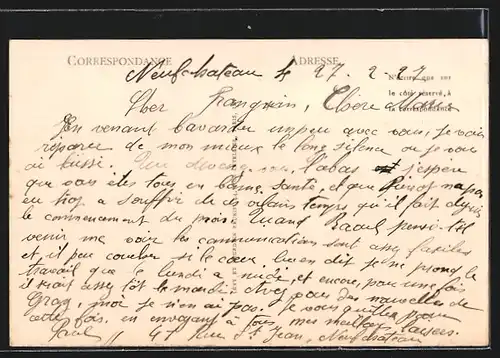 CORRESPONDANCE ADRESSE
Neufchateau le 27. 2. 27
N'écrire que sur
le côté réservé, à
la correspondance
Cher Franquin, Chère Maria
En venant bavarder un peu avec vous, je vais
réparer de mon mieux le long silence ou je vous
ai laissé. Que devenez vous, là bas et j'espère
que vous êtes tous en bonne santé, et que
en trop a souffrir de ces vilains temps qu'il fait depuis
le commencement du mois. Quand Raoul pense-t-il
venir me voir les communications sont assez faciles
et, il peu coucher si le cœur lui en dit je ne prend le
travail que le lundi a midi et encore, pour une fois
il serait assez tôt le mardi. Avez vous des nouvelles de
moi je n'en ai pas. Je vous quitte pour
cette fois, en envoyant à tous, mes meilleurs baisers.
Paul 47 Rue St Jean, Neufchateau